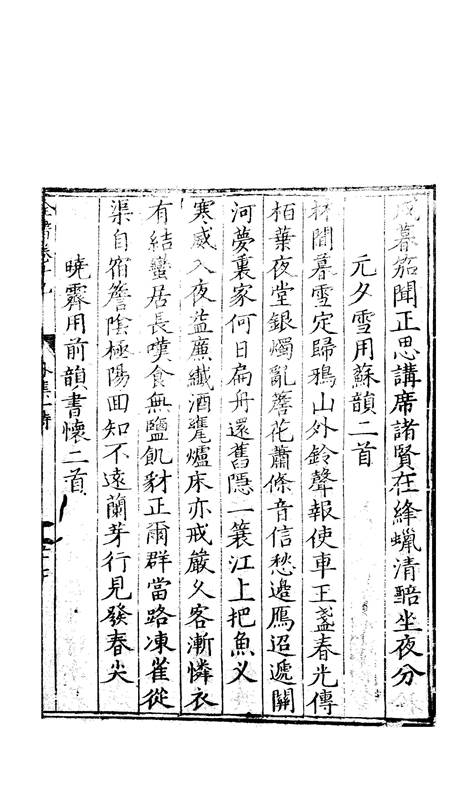 暮笳聞正思講席諸賢在絳蠟清談坐夜分
元夕雪用蘇韻二首
林間暮雪定歸鴉山外鈴聲報使車玉盞春光傳
栢葉夜堂銀燭亂簷花蕭條音信愁邊鴈迢遞關
河夢裏家何日扁舟還舊隱一簑江上把魚义
寒威入夜益廉纖酒甕爐床亦戒嚴久客漸憐衣
有結蠻居長嘆食無鹽飢豺正爾群當路凍雀從
渠自宿簷陰極陽回知不遠蘭芽行見發春尖
曉霽用前韻書懷二首